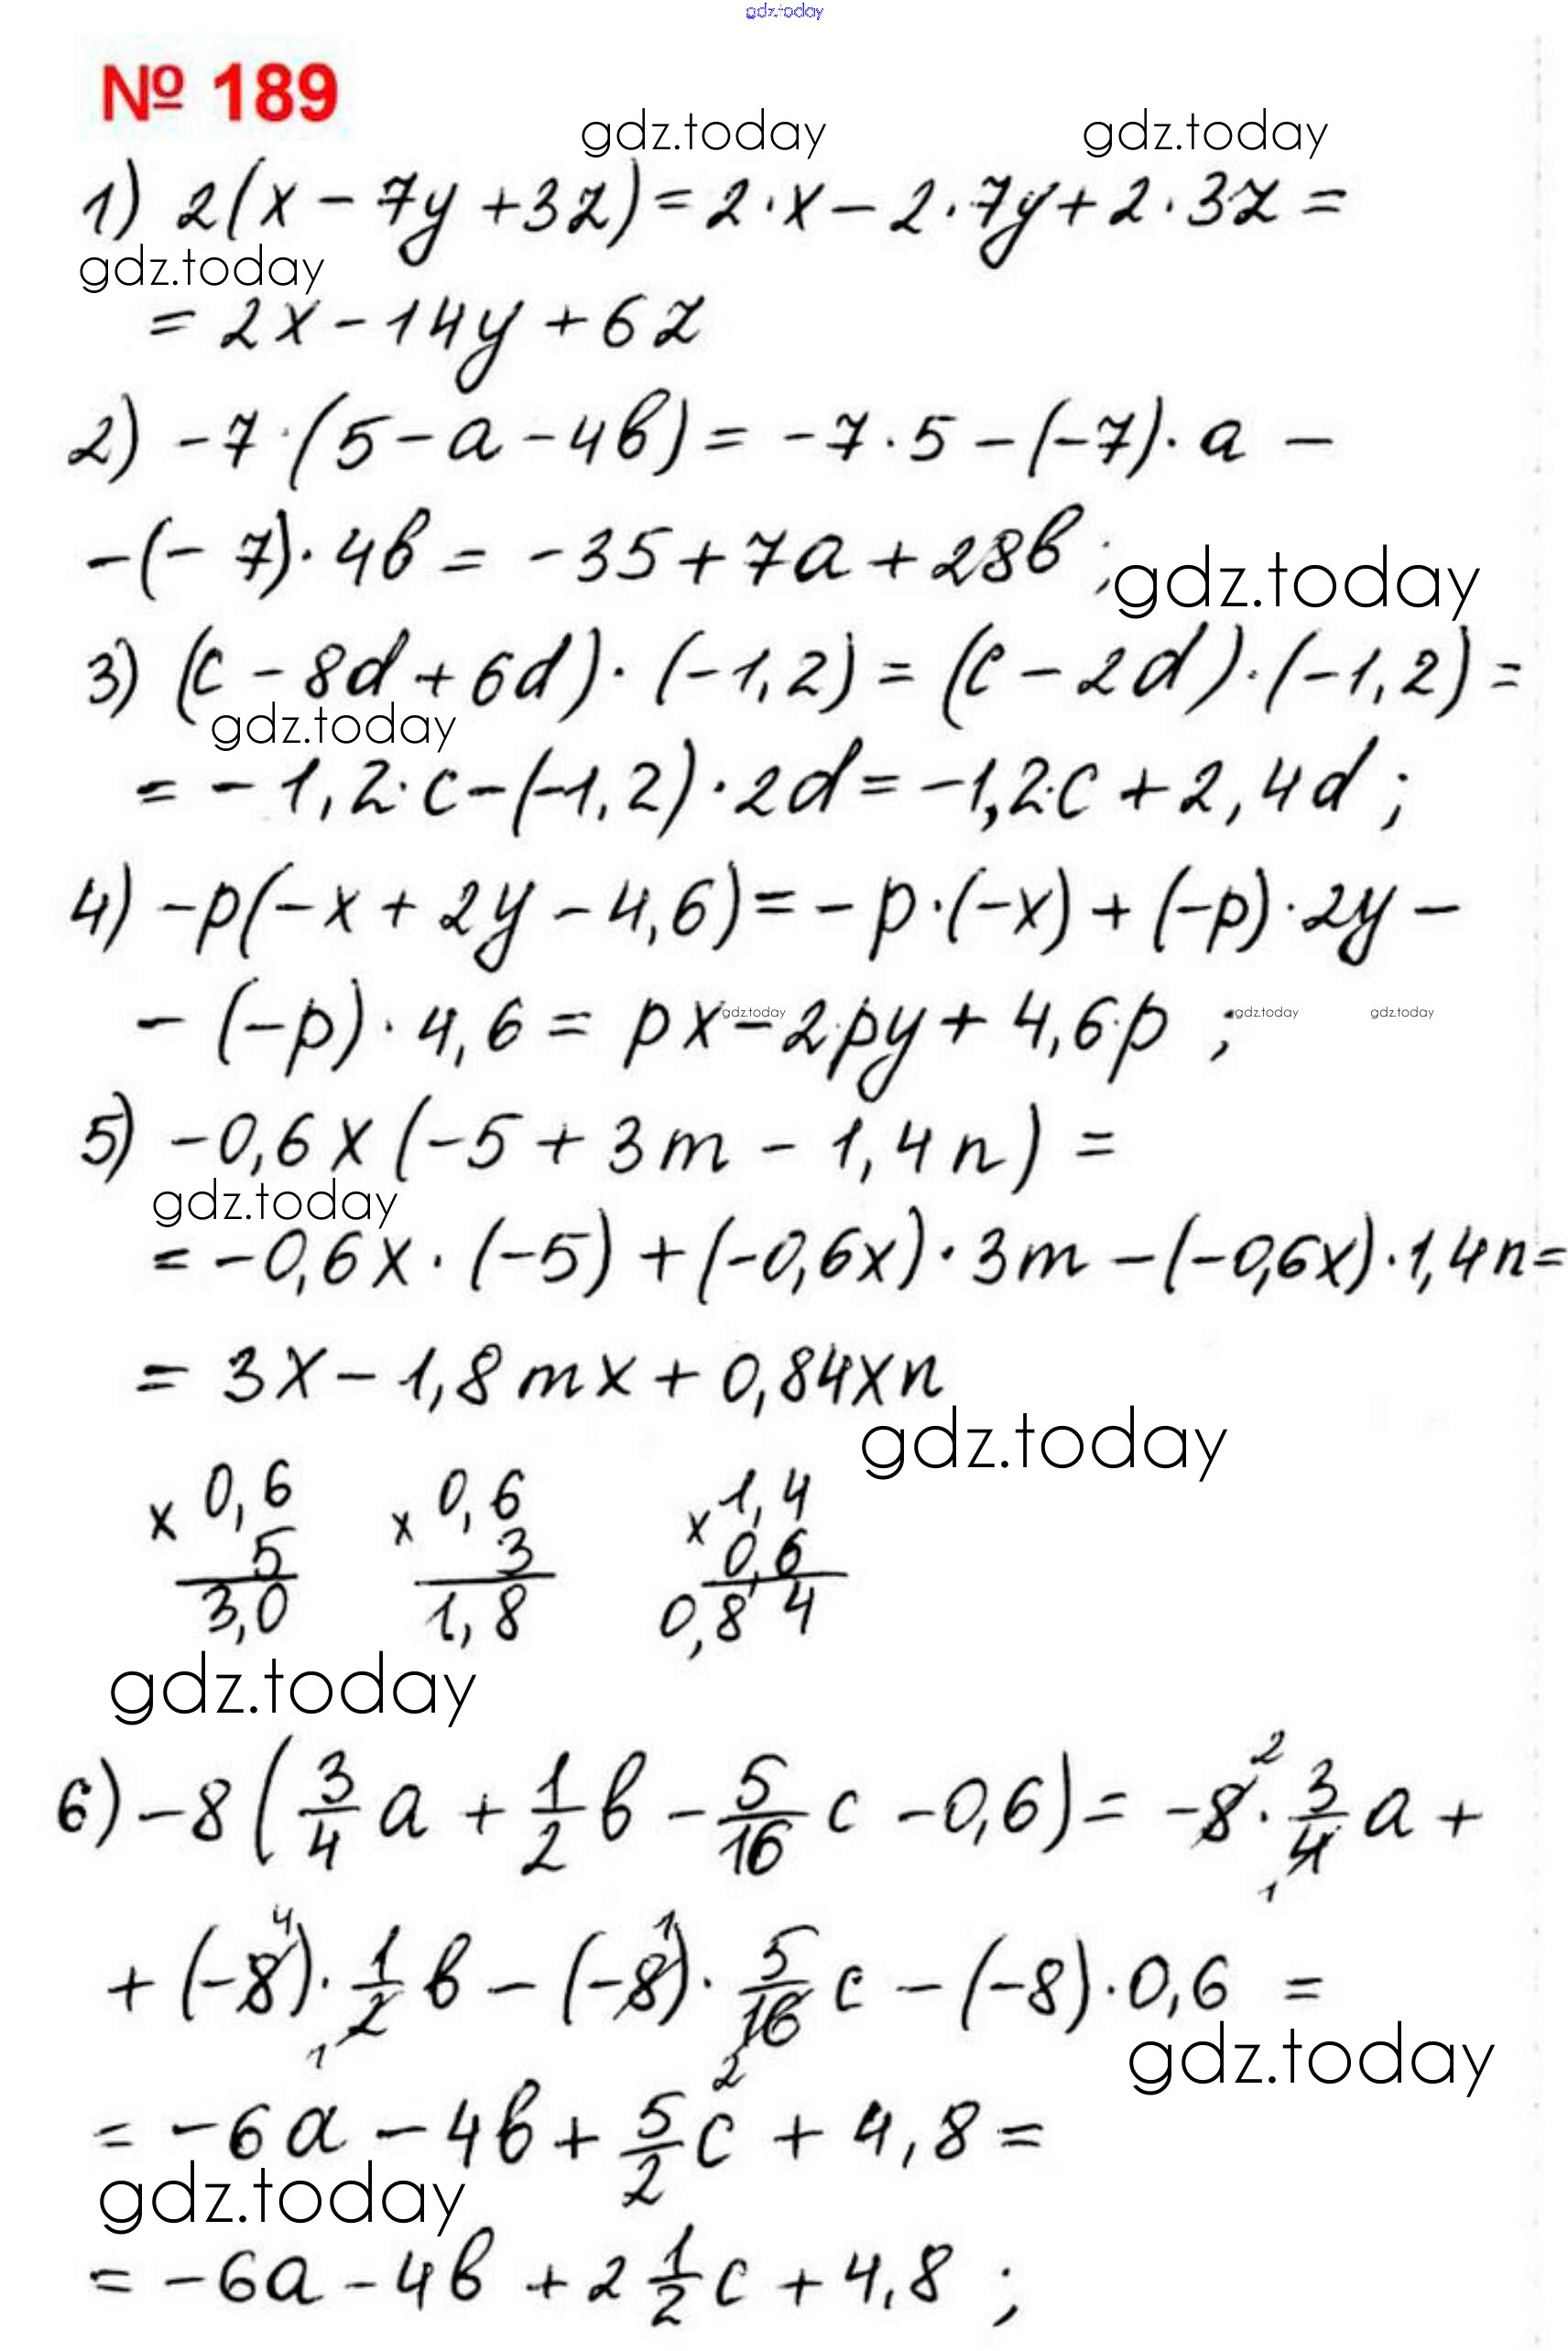 gdz.today
№ 189
gdz.today gdz.today
1) 2(x - 7y + 3z) = 2·x - 2·7y + 2·3z =
gdz.today
= 2x - 14y + 6z
2) -7·(5 - a - 4b) = -7·5 - (-7)·a -
-(-7)·4b = -35 + 7a + 28b ;
gdz.today
3) (c - 8d + 6d)·(-1,2) = (c - 2d)·(-1,2) =
gdz.today
= -1,2·c - (-1,2)·2d = -1,2·c + 2,4d ;
4) -p(-x + 2y - 4,6) = -p·(-x) + (-p)·2y -
-(-p)·4,6 = px - 2py + 4,6·p ;
gdz.today gdz.today gdz.today
5) -0,6x(-5 + 3m - 1,4n) =
gdz.today
= -0,6x·(-5) + (-0,6x)·3m - (-0,6x)·1,4n =
= 3x - 1,8mx + 0,84xn
gdz.today
x 0,6 x 0,6 x 1,4
5 3 0,6
3,0 1,8 0,84
gdz.today
6) -8(3/4 a + 1/2 b - 5/16 c - 0,6) = -8 2 · 3/4 1 a +
+ (-8 4)·1/2 1 b - (-8 1)·5/16 2 c - (-8)·0,6 =
gdz.today
= -6a - 4b + 5/2 c + 4,8 =
gdz.today
= -6a - 4b + 2 1/2 c + 4,8 ;